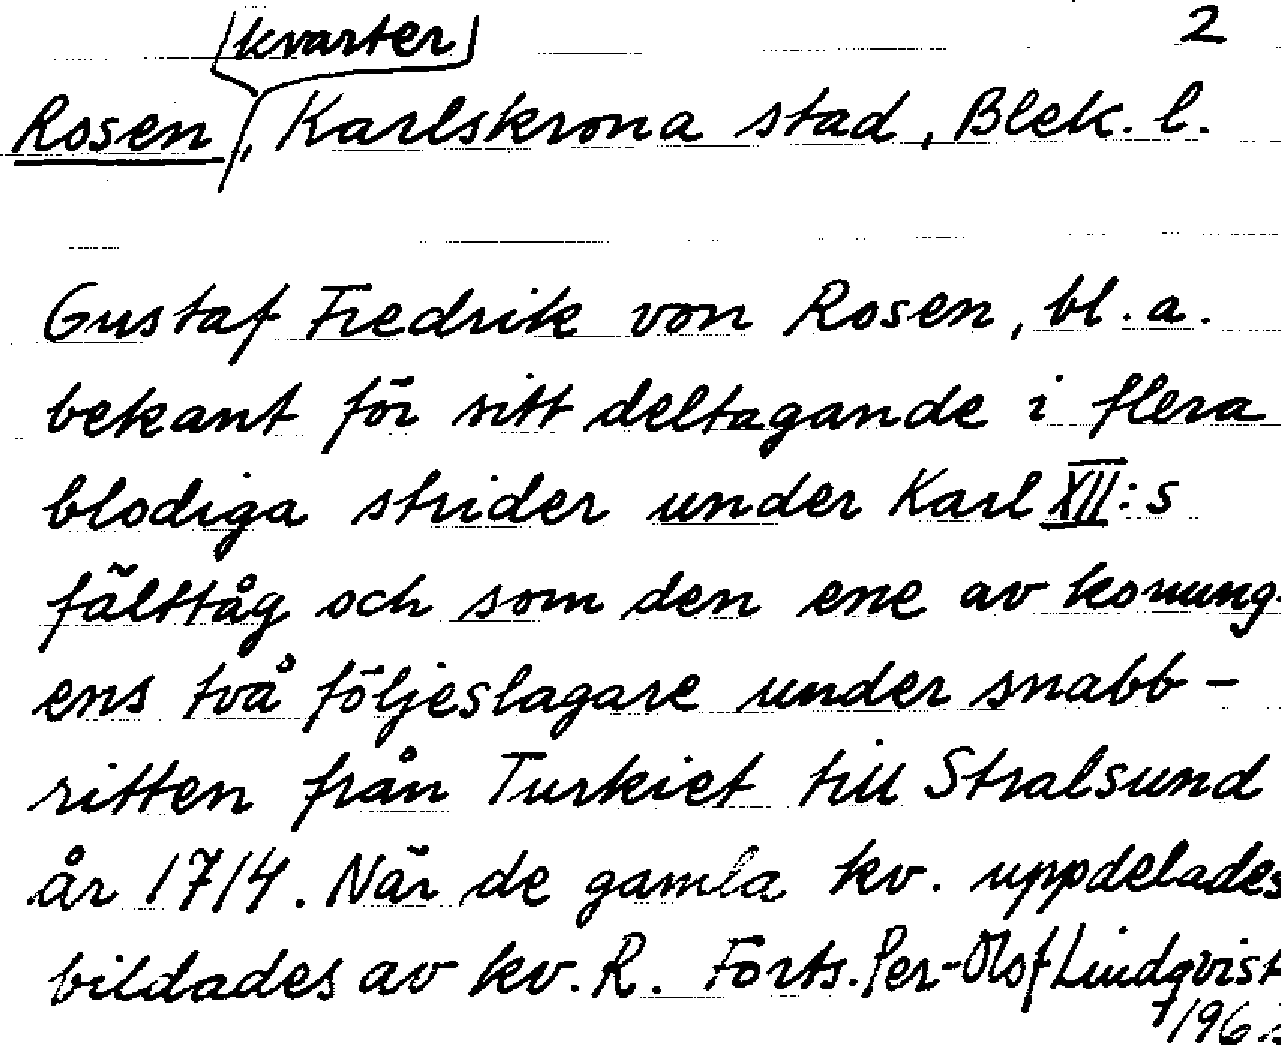 kvarter 2
Rosen, Karlskrona stad, Blek. l.
Gustaf Fredrik von Rosen, bl. a.
bekant för sitt deltagande i flera
blodiga strider under Karl XII:s
fälttåg och som den ene av konung-
ens två följeslagare under snabb-
ritten från Turkiet till Stralsund
år 1714. När de gamla kv. uppdelades
bildades av kv. R. Forts. Per-Olof Lindqvist